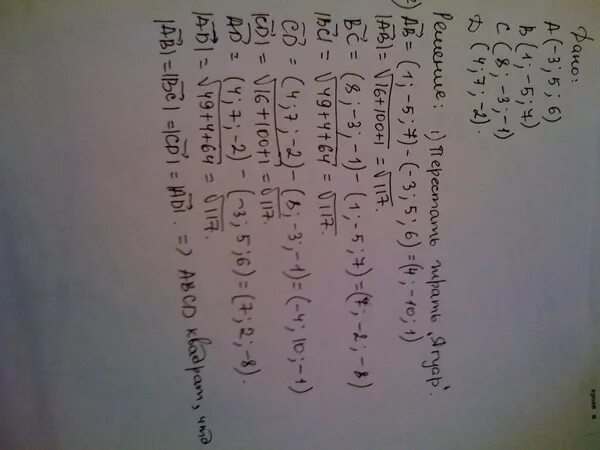 Дано:
A(-3; 5; 6)
B(1; -5; 7)
C(8; -3; -1)
D(4; 7; -2).
Решение: 1) Перестать пирать „Ягуар".
AB = (1; -5; 7) - (-3; 5; 6) = (4; -10; 1)
|AB| = √16+100+1 = √117.
BC = (8; -3; -1) - (1; -5; 7) = (7; -2; -8)
|BC| = √49+4+64 = √117.
CD = (4; 7; -2) - (8; -3; -1) = (-4; 10; -1)
|CD| = √16+100+1 = √117.
AD = (4; 7; -2) - (-3; 5; 6) = (7; 2; -8).
|AD| = √49+4+64 = √117.
|AB| = |BC| = |CD| = |AD|. => ABCD квадрат, чтд